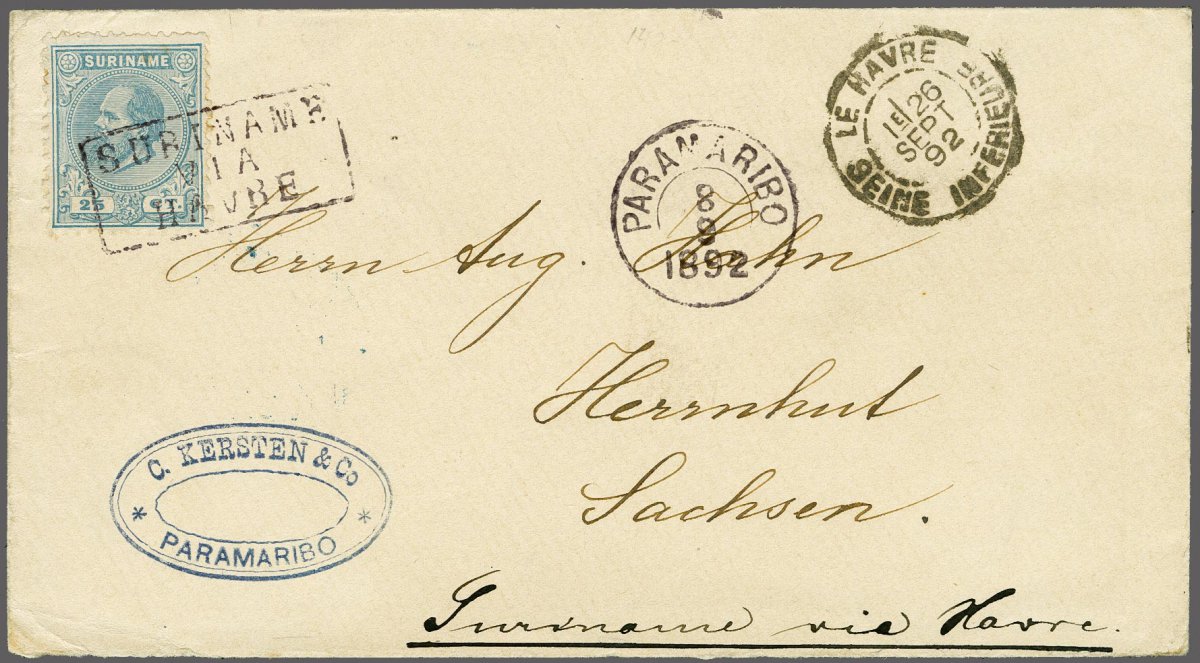 SURINAME
25 CT.
SURINAME
VIA
HAVRE
PARAMARIBO
8
9
1892
LE HAVRE
SEINE INFERIEURE
1E/
SEP 26
92
Herrn Aug. Hahn
Herrnhut
Sachsen.
C. KERSTEN & Co
* PARAMARIBO *
Suriname via Havre.